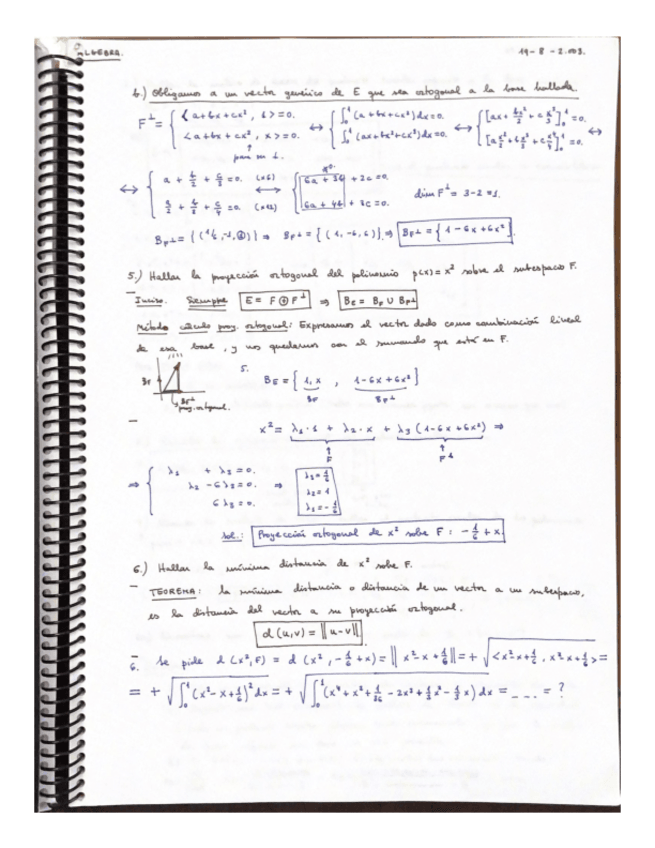 ALGEBRA. 19-8-2.003.
b.) Obligamos a un vector genérico de E que sea ortogonal a la base hallada.
F⊥ = { <a+bx+cx², 1>=0. ↔ { ∫₀¹ (a+bx+cx²)dx=0. ↔ { [ax + bx²/2 + c x³/3]₀¹ = 0.
<a+bx+cx², x>=0. ∫₀¹ (ax+bx²+cx³)dx=0. [a x²/2 + b x³/3 + c x⁴/4]₀¹ = 0. ↔
↑
para ser ⊥.
↔ { a + b/2 + c/3 = 0. (×6) ↔ { 6a + 3b + 2c = 0. dim F⊥ = 3-2 = 1.
a/2 + b/3 + c/4 = 0. (×12) 6a + 4b + 3c = 0.
B_F⊥ = { (1/6, -1, 1) } ⇒ B_F⊥ = { (1, -6, 6) } ⇒ B_F⊥ = { 1-6x+6x² }
5.) Hallar la proyección ortogonal del polinomio p(x) = x² sobre el subespacio F.
Inciso. Siempre E = F ⊕ F⊥ ⇒ B_E = B_F ∪ B_F⊥
Método cálculo proy. ortogonal: Expresamos el vector dado como combinación lineal
de esa base, y nos quedamos con el sumando que está en F.
BF
BF⊥
proy. ortogonal.
5. B_E = { 1, x , 1-6x+6x² }
BF BF⊥
x² = λ₁·1 + λ₂·x + λ₃ (1-6x+6x²) ⇒
↑ ↑
F F⊥
⇒ { λ₁ + λ₃ = 0. ⇒ λ₃ = 1/6
λ₂ - 6λ₃ = 0. λ₂ = 1
6λ₃ = 0. λ₁ = -1/6
Sol.: Proyección ortogonal de x² sobre F: -1/6 + x
6.) Hallar la mínima distancia de x² sobre F.
TEOREMA: la mínima distancia o distancia de un vector a un subespacio,
es la distancia del vector a su proyección ortogonal.
d(u,v) = ||u-v||.
6. Se pide d(x², F) = d(x², -1/6 + x) = || x²-x+1/6 || = + √<x²-x+1/6, x²-x+1/6> =
= + √∫₀¹ (x²-x+1/6)² dx = + √∫₀¹ (x⁴ + x² + 1/36 - 2x³ + 1/3 x² - 1/3 x) dx = _ _ _ = ?